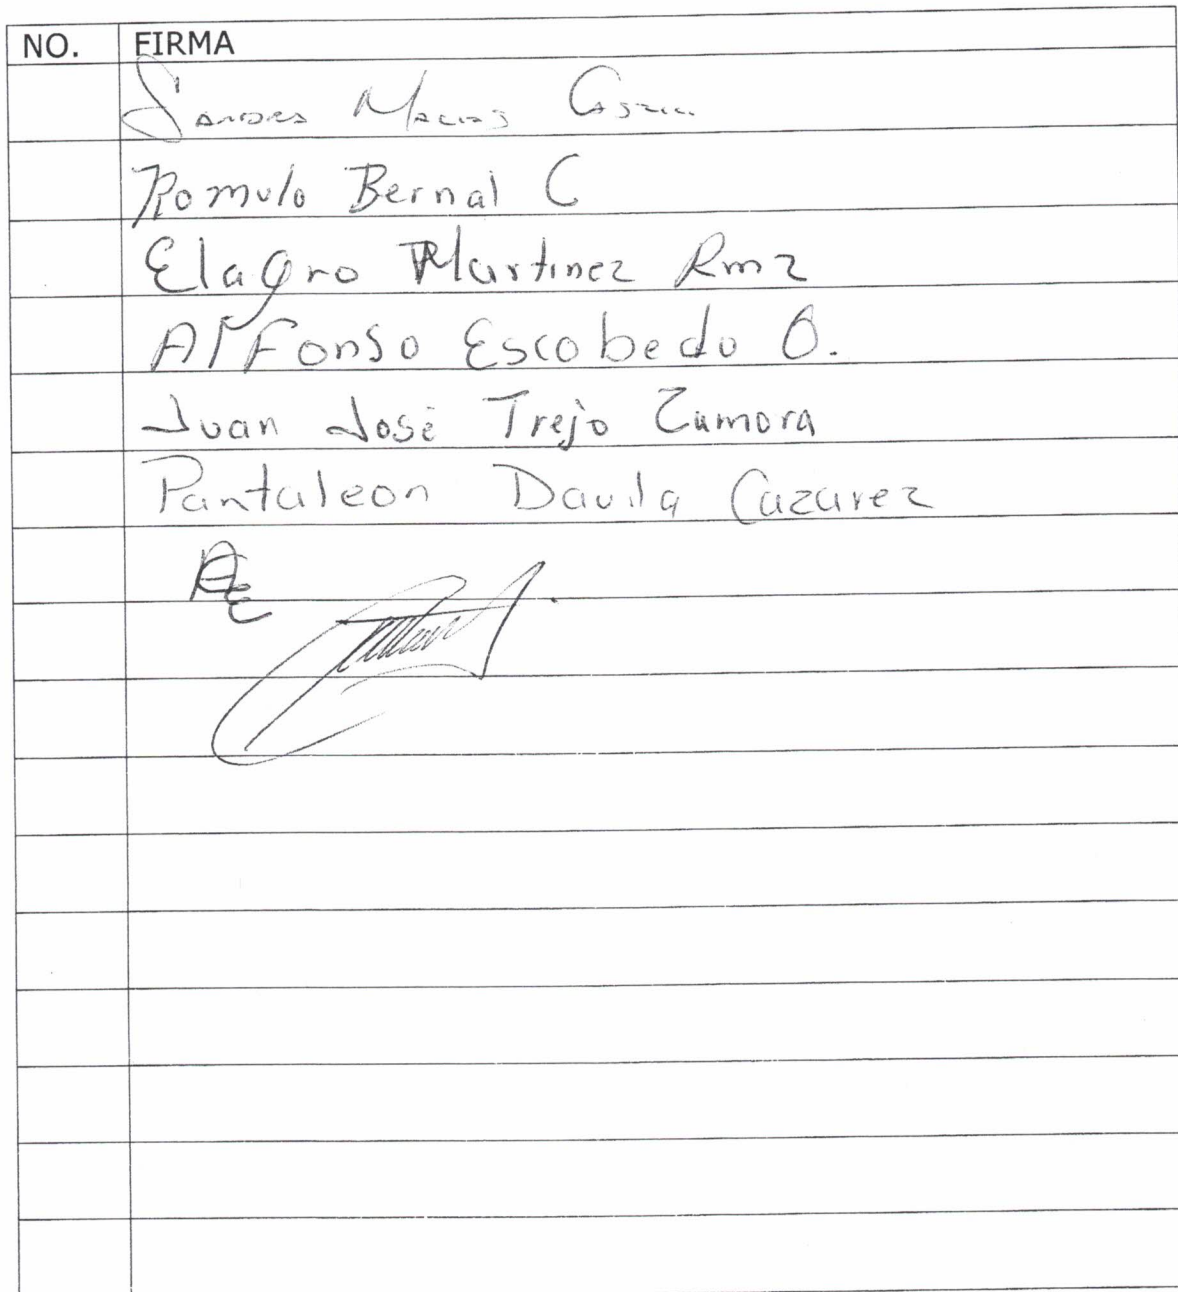 NO. FIRMA
Sandra Macias
Romulo Bernal C
Elagro Martinez Rmz
Alffonso Escobedo O.
Juan José Trejo Zamora
Pantaleon Davila Cazarez
AE